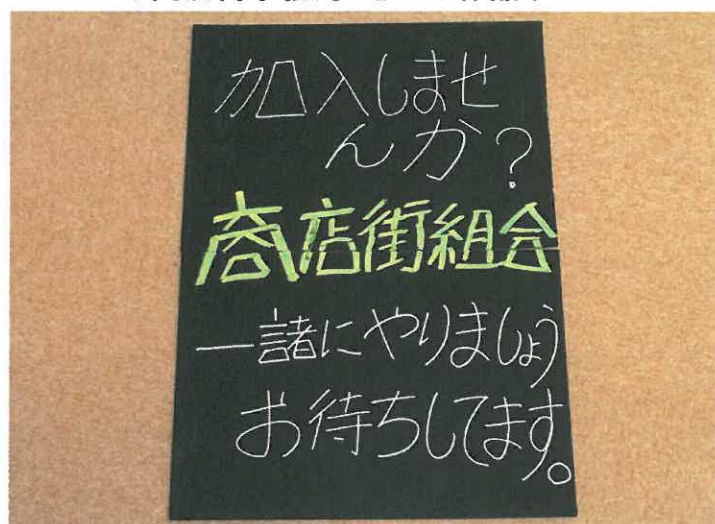 加入しませ
んか？
商店街組合
一諸にやりましょう
お待ちしてます。